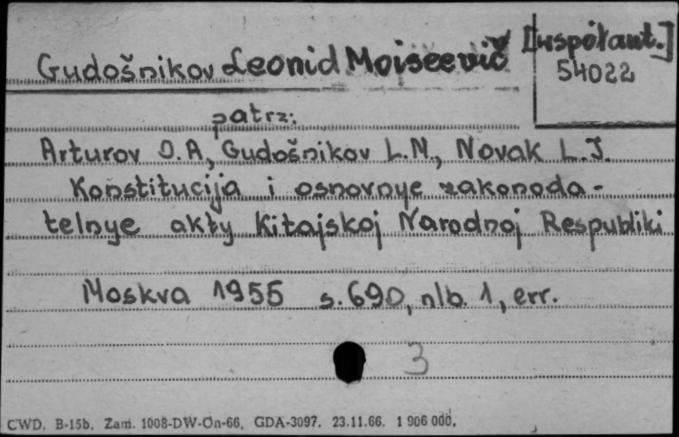 Gudošnikov Leonid Moiseevič [współaut.]
54022
patrz:
Arturov O.A, Gudošnikov L.M., Novak L.I.
Konstitucija i osnovnye zakonoda-
telnye akty Kitajskoj Narodnoj Respubliki
Moskva 1955 s. 690, nlb. 1, err.
3
CWD. B-15b. Zam. 1008-DW-On-66. GDA-3097. 23.11.66. 1 906 000.